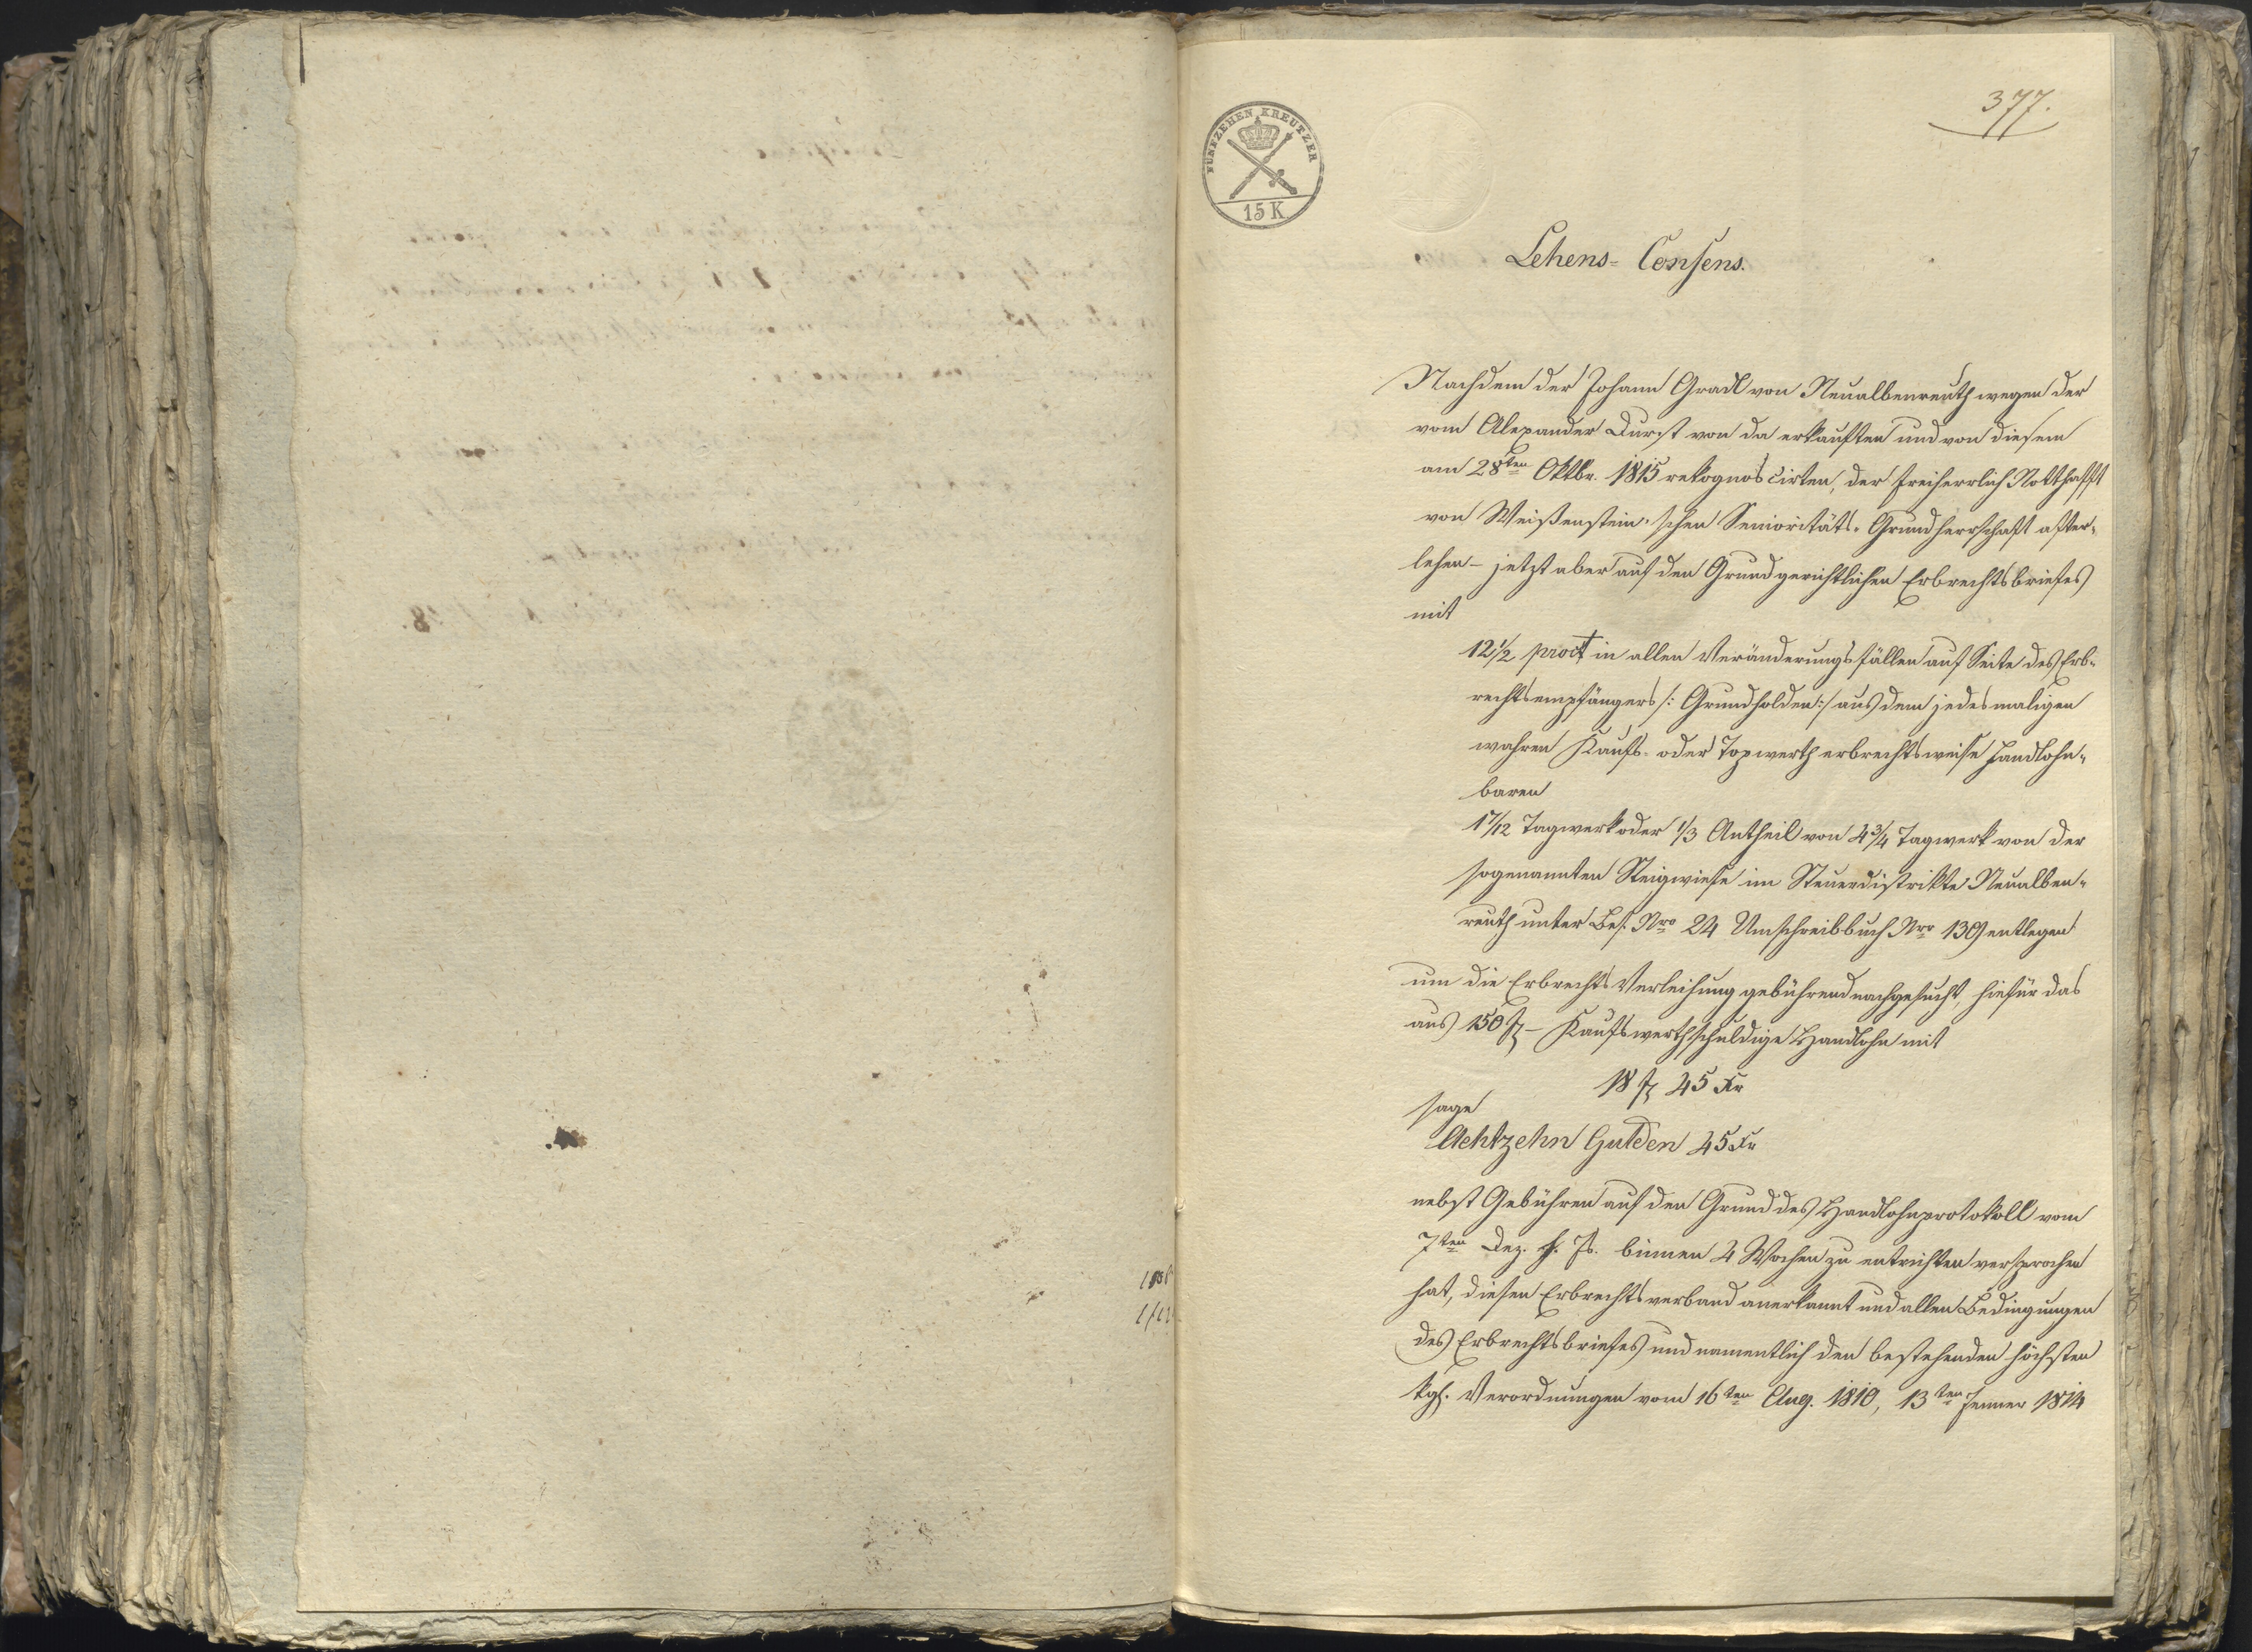 377.
FÜNFZEHEN KREUTZER
15 K
Lehens- Consens.
Nachdem der Johann Gradl von Neualbenreuth wegen der
vom Alexander Durst von da erkauften und von diesem
am 28ten Oktbr. 1815 rekognoscirten, der freiherrlich Notthafft
von Weißenstein'schen Senioritäts-Grundherrschaft after-
lehen- jetzt aber auf den Grund gerichtlichen Erbrechtsbriefes
mit
12 1/2 proct in allen Veränderungsfällen auf Seite des Erb-
rechtsempfängers /: Grundholden :/ aus dem jedesmaligen
wahren Kaufs- oder Taxwerth erbrechtsweise handlohn-
baren
1 7/12 Tagwerk oder 1/3 Antheil von 4 3/4 Tagwerk von der
sogenannten Steigwiese im Steuerdistrikte Neualben-
reuth unter Bes. Nro 24 Umschreibbuch Nro 139 entlegen
um die Erbrechts Verleihung gebührend nachgesucht, hiefür das
aus 150 f - Kaufswerth schuldige Handlohn mit
18 f 45 Kr
sage
Achtzehn Gulden 45 Kr
nebst Gebühren auf den Grund des Handlohnprotokoll vom
7ten Dez. h. Js. binnen 4 Wochen zu entrichten versprochen
hat, diesen Erbrechtsverband anerkannt und allen Bedingungen
des Erbrechtsbriefes und namentlich den bestehenden höchsten
kgl. Verordnungen vom 16ten Aug. 1810, 13ten Jenner 1814